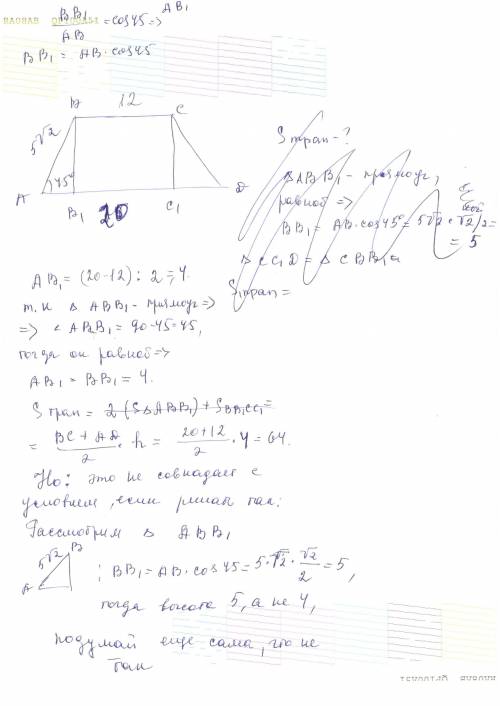 BB₁/AB = cos 45 =>
AB₁
BB₁ = AB · cos 45
12
B
C
5√2
45°
A
B₁
20
C₁
D
S трап - ?
△ABB₁ - прямоуг,
равноб =>
BB₁ = AB · cos 45° = 5√2 · √2/2 =
= 5
△CC₁D = △
S трап =
AB₁ = (20-12) : 2 = 4.
т.к △ABB₁ - прямоуг =>
=> ∠ABB₁ = 90-45=45,
тогда он равноб =>
AB₁ = BB₁ = 4.
S трап = 2(S△ABB₁) + S BB₁CC₁ =
= (BC + AD)/2 · h = (20+12)/2 · 4 = 64.
Но: это не совпадает с
условием, если решать так:
Рассмотрим △ABB₁
5√2
B
A
; BB₁ = AB · cos 45 = 5·√2 · √2/2 = 5,
тогда высота 5, а не 4,
подумай еще сама, что не
так